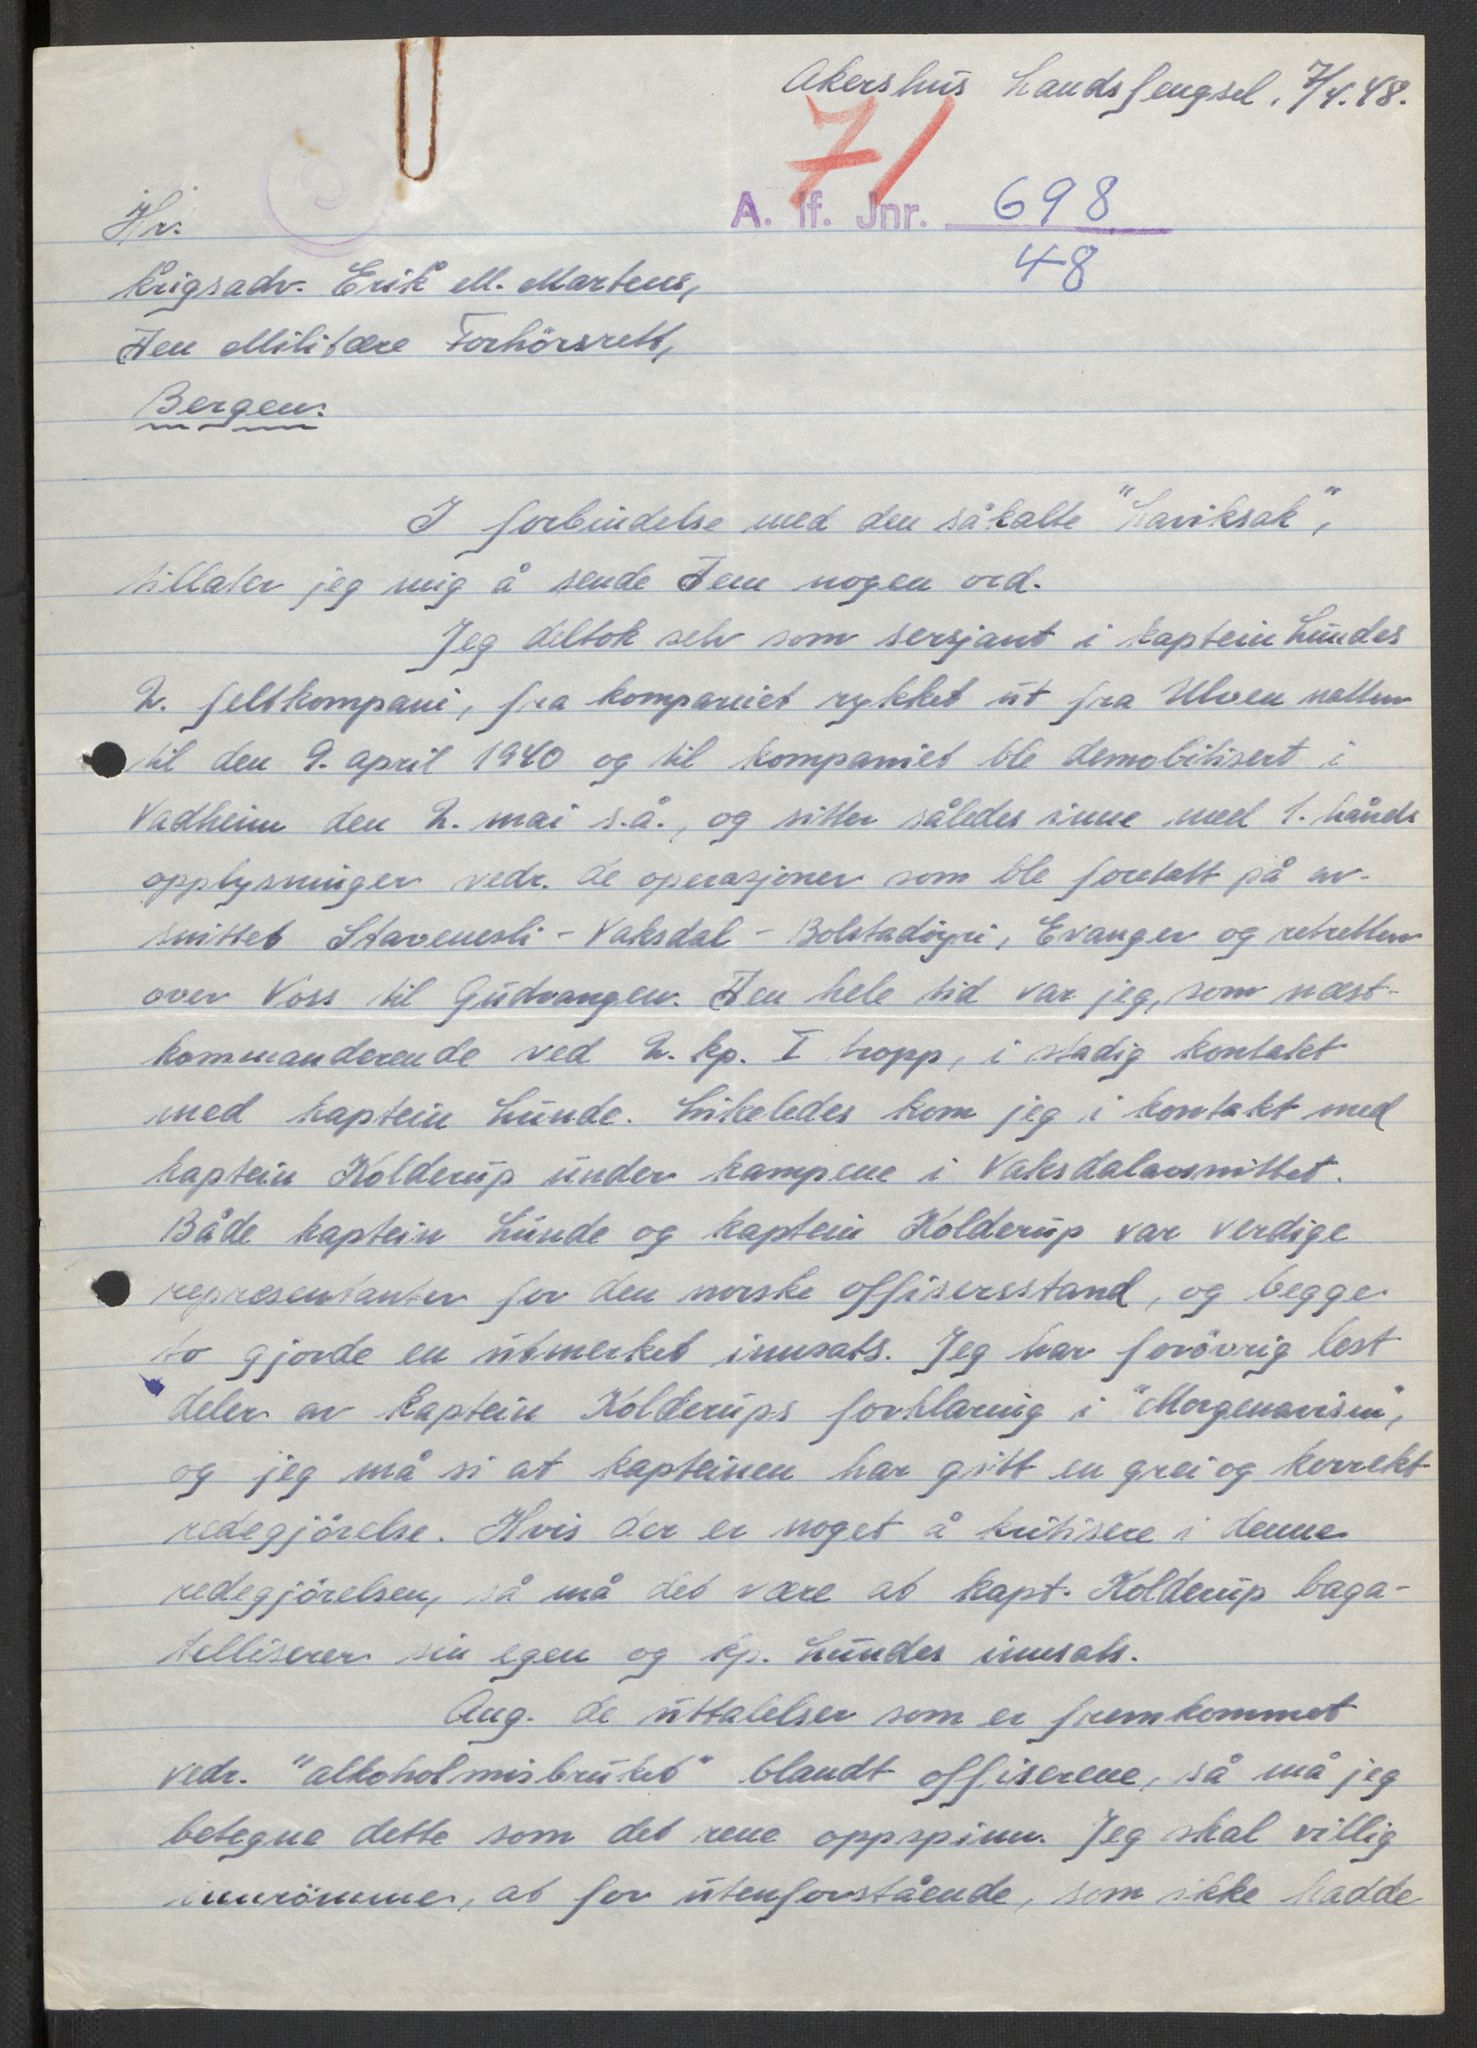 Akershus Landsfengsel, 7/4.48.
71
A. If. Jnr. 698
48
Hr.
Krigsadv. Erik M. Martens,
Den Militære Forhörsrett,
Bergen.
I forbindelse med den såkalte "Larviksak",
tillater jeg mig å sende Dem nogen ord.
Jeg deltok selv som sersjant i kaptein Lundes
2. feltkompani, fra kompaniet rykket ut fra Ulven natten
til den 9. april 1940 og til kompaniet ble demobilisert i
Vadheim den 2. mai s.å., og sitter således inne med 1. hånds
opplysninger vedr. de operasjoner som ble foretatt på av-
snittet Stavenesli - Vaksdal - Bolstadöyri, Evanger og retretten
over Voss til Gudvangen. Den hele tid var jeg, som næst-
kommanderende ved 2. kp. I tropp, i stadig kontakt
med kaptein Lunde. Likeledes kom jeg i kontakt med
kaptein Kolderup under kampene i Vaksdalavsnittet.
Både kaptein Lunde og kaptein Kolderup var verdige
representanter for den norske offisersstand, og begge
to gjorde en utmerket innsats. Jeg har forövrig lest
deler av kaptein Kolderups forklaring i "Morgenavisen",
og jeg må si at kapteinen har gitt en grei og korrekt
redegjörelse. Hvis der er noget å kritisere i denne
redegjörelsen, så må det være at kapt. Kolderup baga-
telliserer sin egen og kp. Lundes innsats.
Ang. de uttalelser som er fremkommet
vedr. "alkoholmisbruket" blandt offiserene, så må jeg
betegne dette som det rene oppspinn. Jeg skal villig
innrömme, at for utenforstående, som ikke hadde